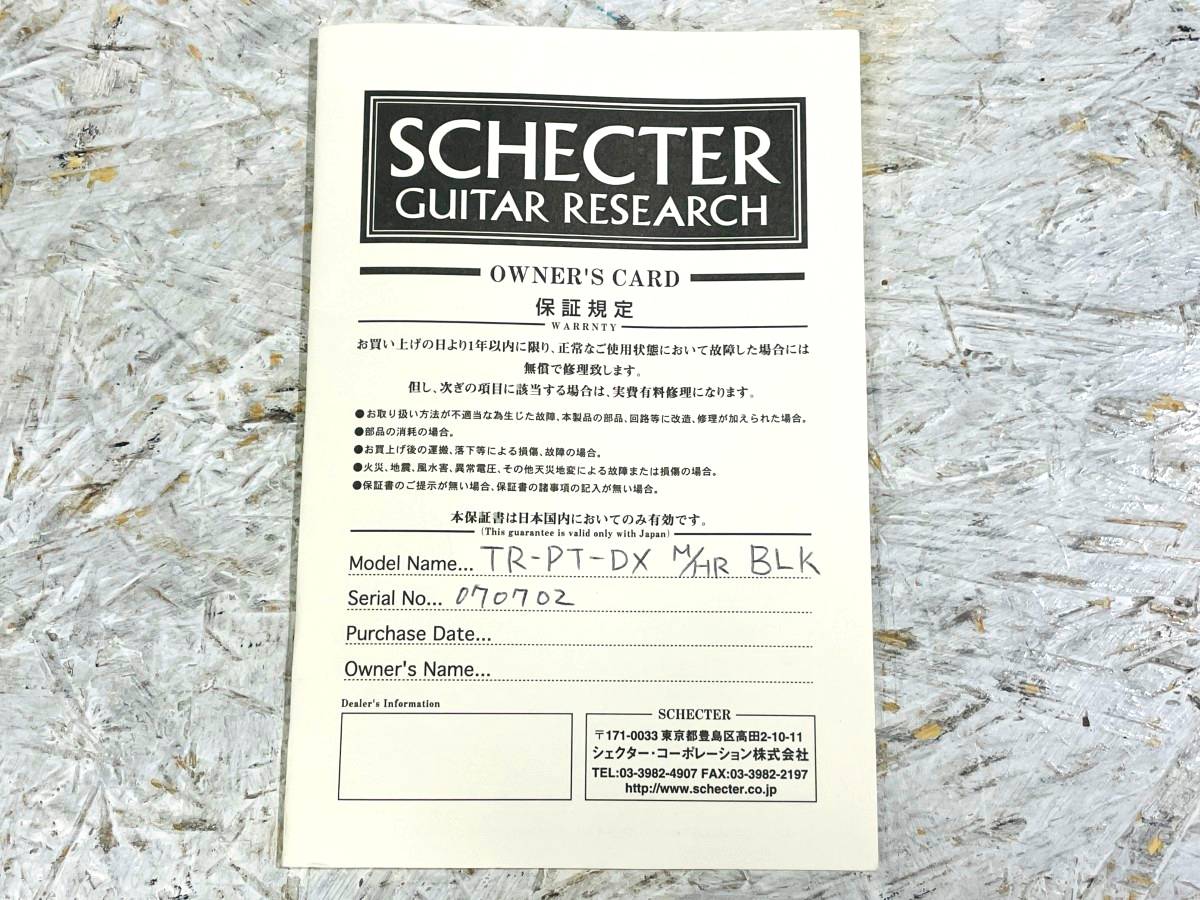 SCHECTER
GUITAR RESEARCH
OWNER'S CARD
保証規定
WARRNTY
お買い上げの日より1年以内に限り、正常なご使用状態において故障した場合には
無償で修理致します。
但し、次ぎの項目に該当する場合は、実費有料修理になります。
●お取り扱い方法が不適当な為生じた故障、本製品の部品、回路等に改造、修理が加えられた場合。
●部品の消耗の場合。
●お買上げ後の運搬、落下等による損傷、故障の場合。
●火災、地震、風水害、異常電圧、その他天災地変による故障または損傷の場合。
●保証書のご提示が無い場合、保証書の諸事項の記入が無い場合。
本保証書は日本国内においてのみ有効です。
(This guarantee is valid only with Japan)
Model Name... TR-PT-DX M/HR BLK
Serial No... 070702
Purchase Date...
Owner's Name...
Dealer's Information
SCHECTER
〒171-0033 東京都豊島区高田2-10-11
シェクター・コーポレーション株式会社
TEL:03-3982-4907 FAX:03-3982-2197
http://www.schecter.co.jp